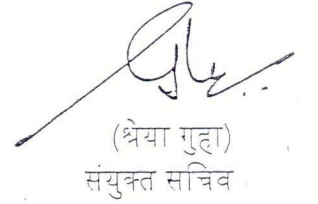 (श्रेया गुहा)
संयुक्त सचिव